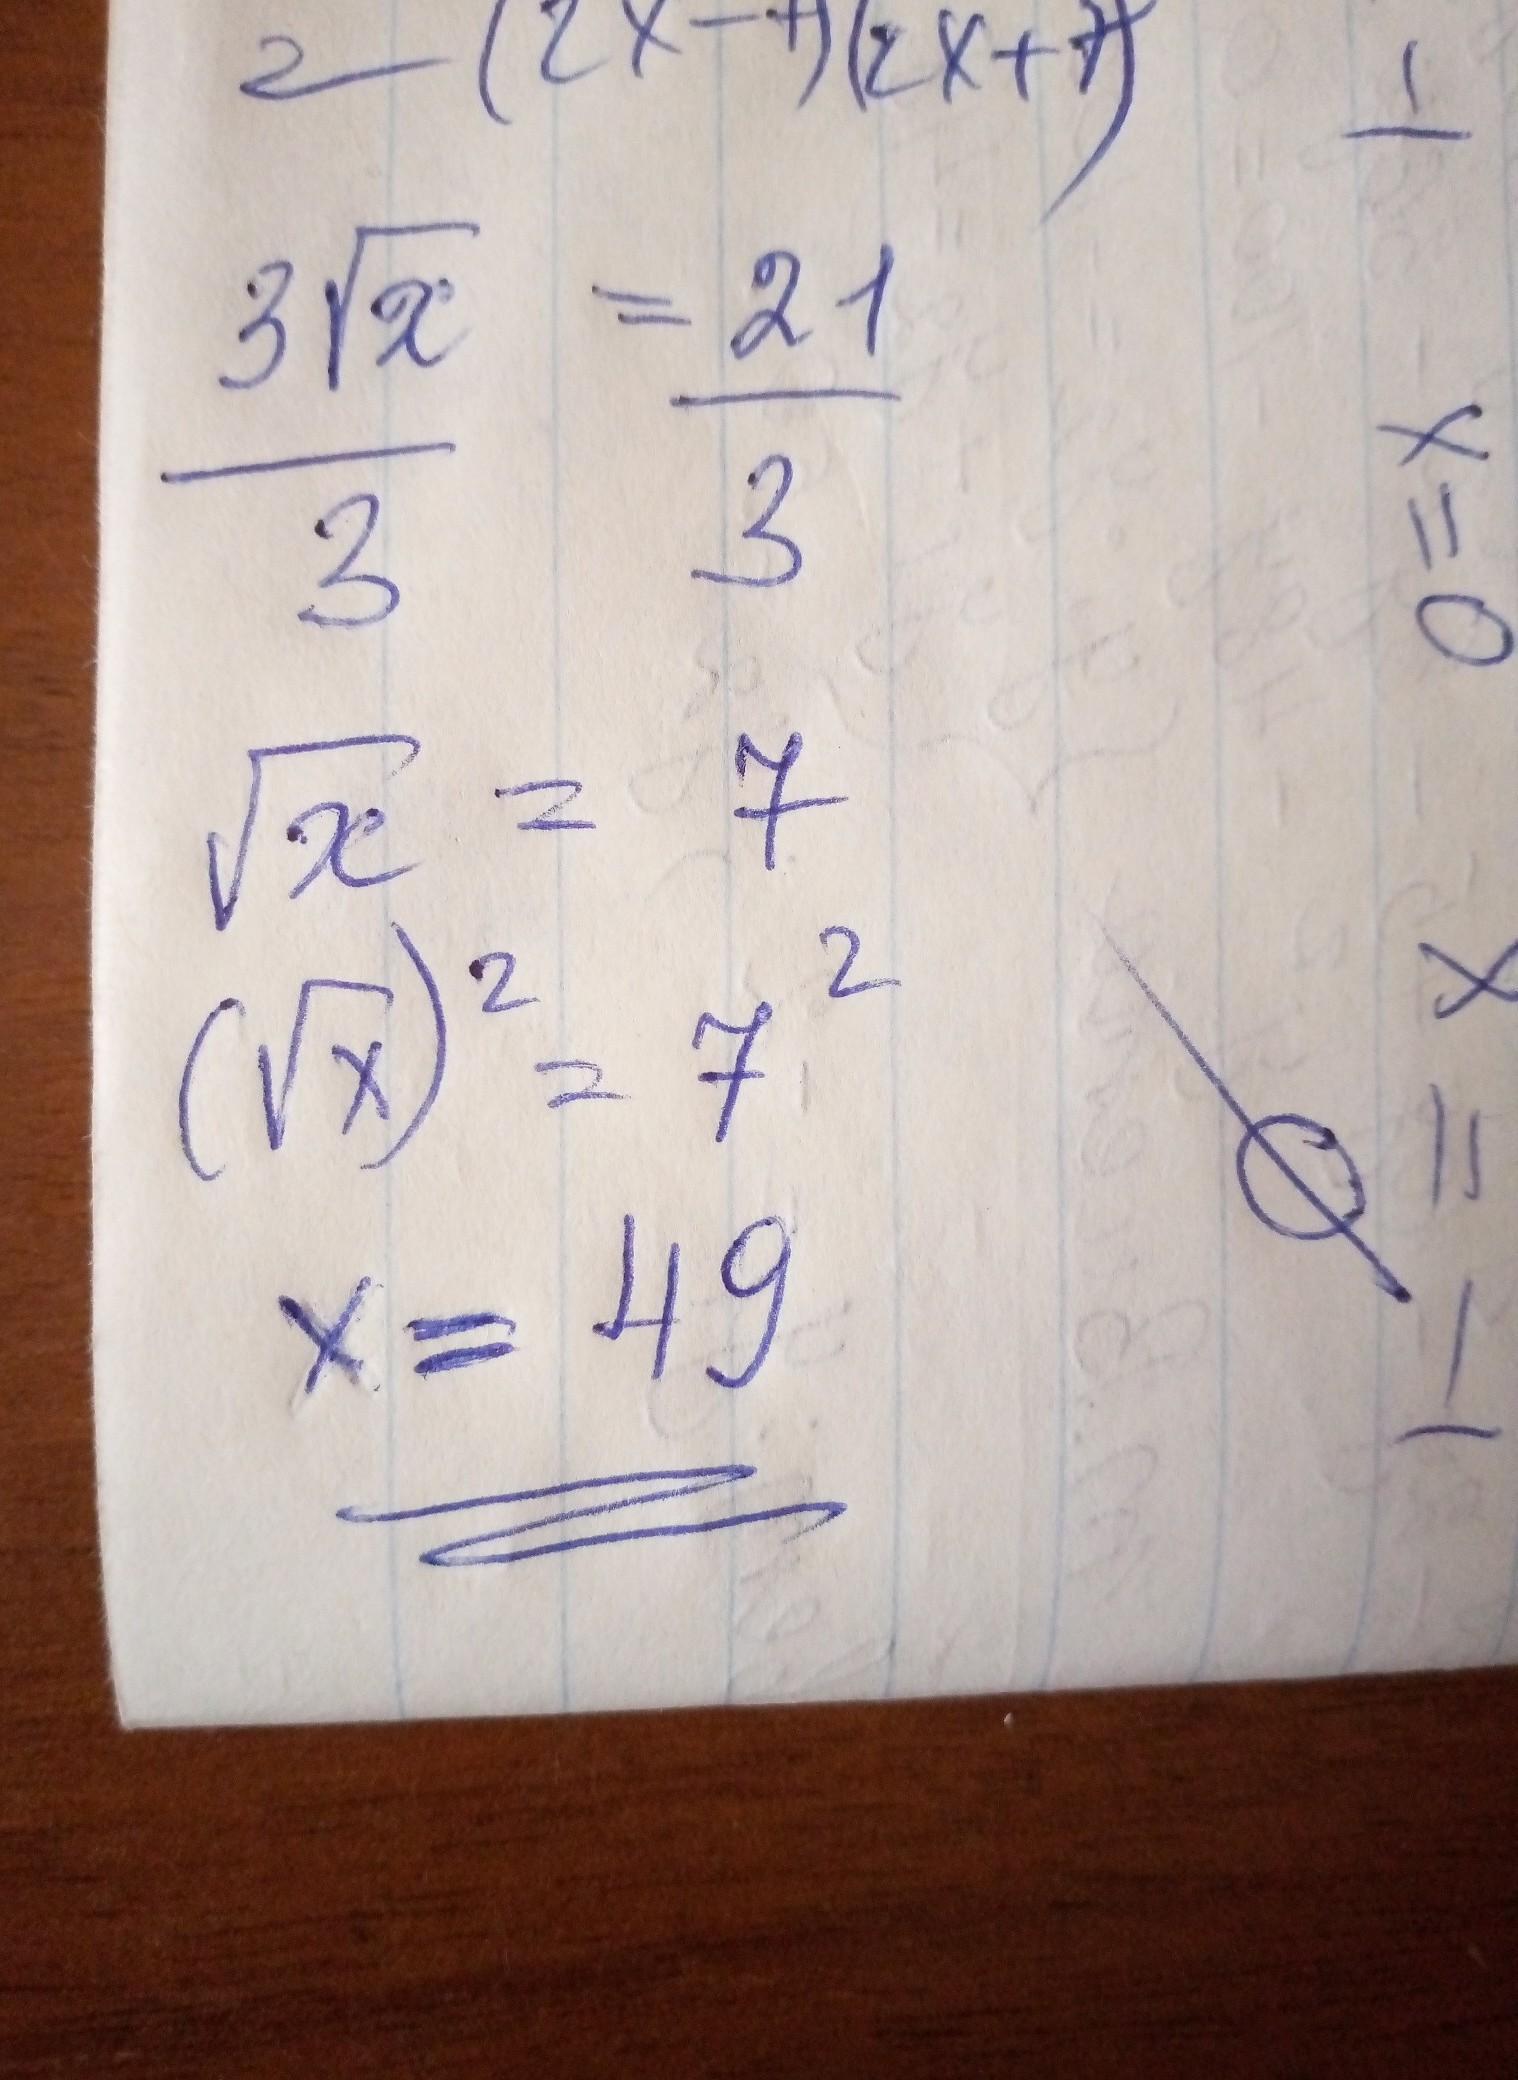 = (2x-7)(2x+7)
3√x = 21
3 3
√x = 7
(√x)² = 7²
x = 49
x = 0
x = 1